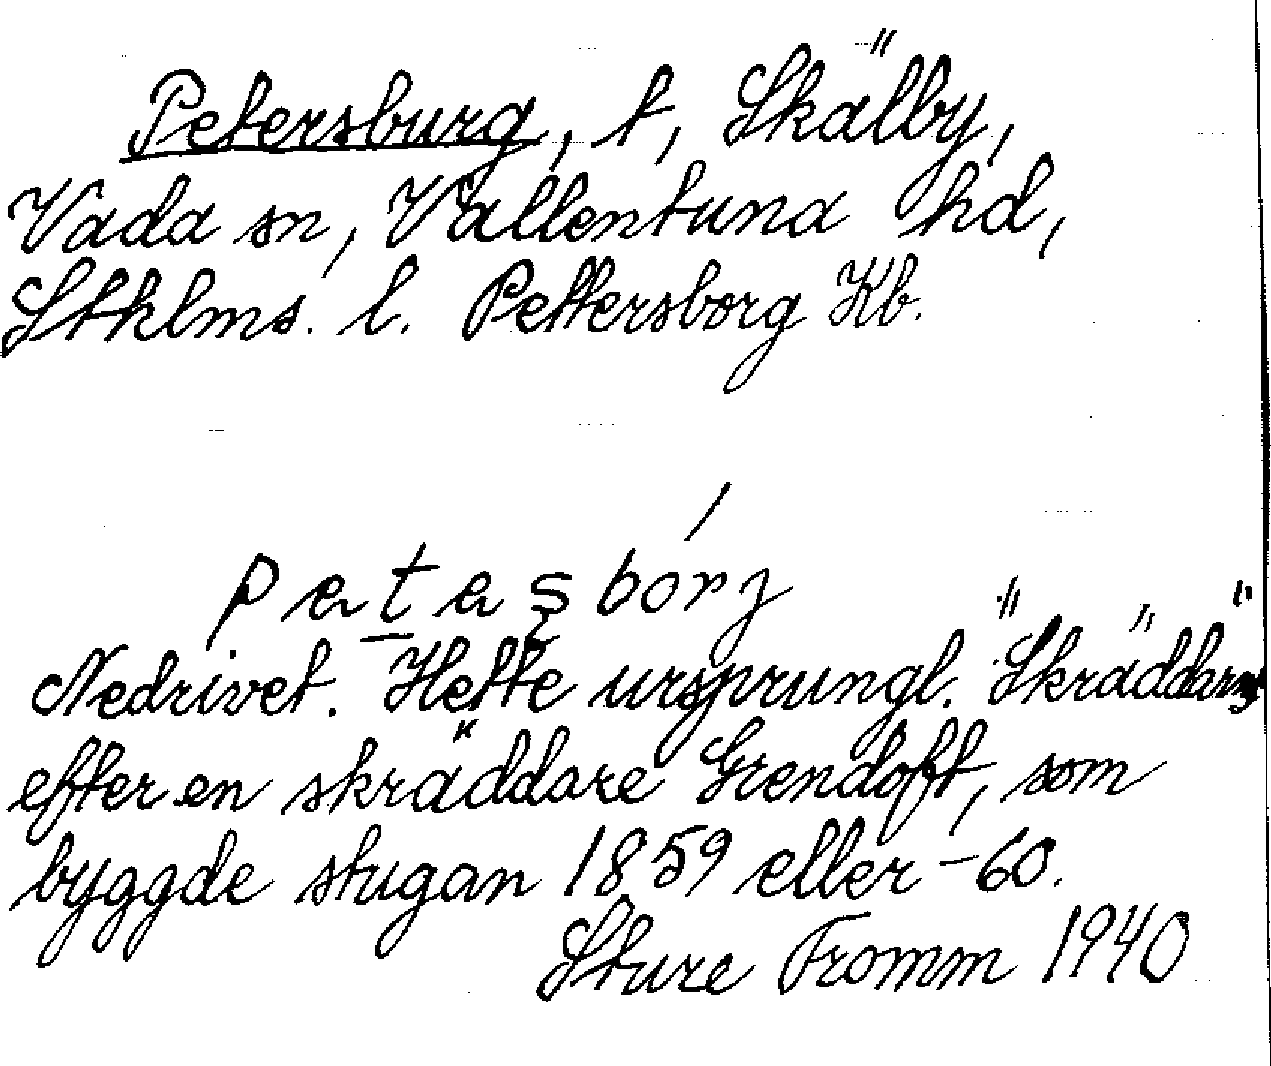 Petersburg, t, Skälby,
Vada sn, Vallentuna hd,
Sthklms. l. Pettersborg Kb.
petaşbórj
Nedrivet. Hette ursprungl. "Skräddars"
efter en skräddare Grendoft, som
byggde stugan 1859 eller -60.
Sture Fromm 1940